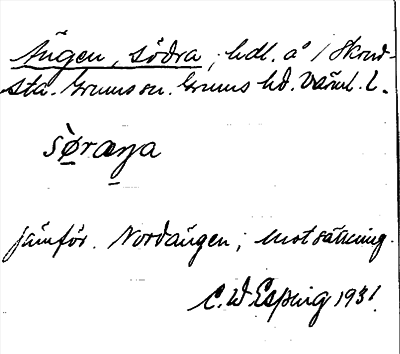 Ängen, södra, hdl. å /Skruf-
sta. Grums sn. Grums hd. Värml. l.
søraŋa
jämför. Nordängen; motsättning.
C. W Esping 1931.